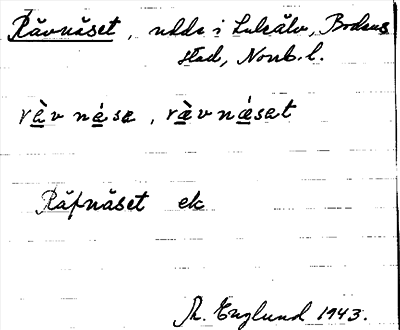 Rävnäset, udde i Luleälv, Bodens
stad, Norrb. l.
rävnäse, rävnäset
Räfnäset ek
Th. Englund 1943.